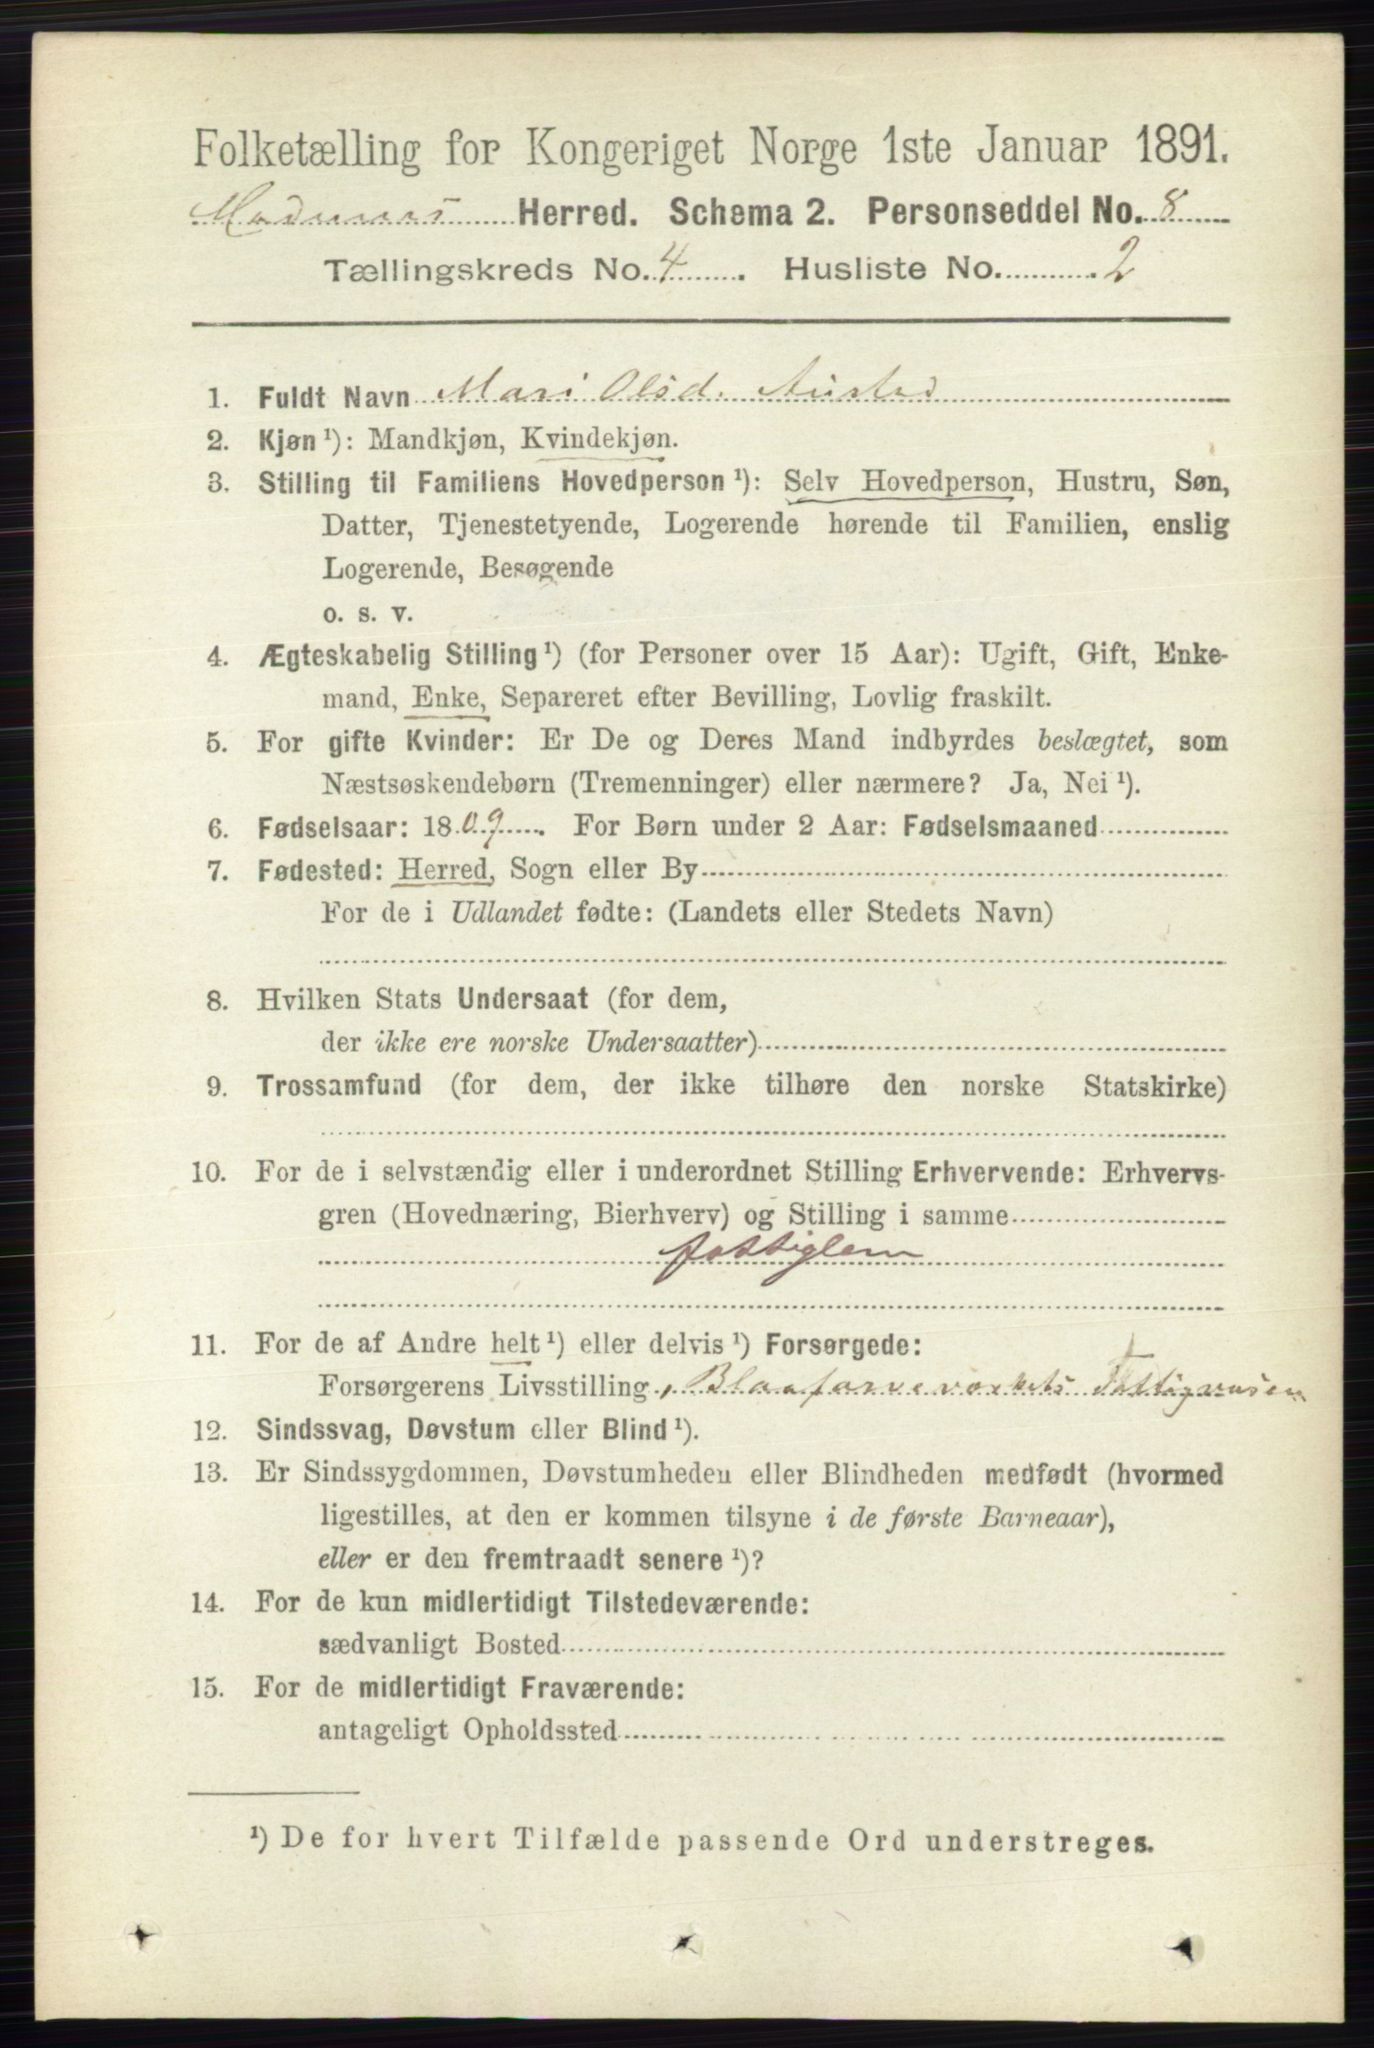 Folketælling for Kongeriget Norge 1ste Januar 1891.
Modums Herred. Schema 2. Personseddel No. 8
Tællingskreds No. 4. Husliste No. 2
1. Fuldt Navn Mari Olsd. Austad
2. Kjøn ¹): Mandkjøn, Kvindekjøn.
3. Stilling til Familiens Hovedperson ¹): Selv Hovedperson, Hustru, Søn,
Datter, Tjenestetyende, Logerende hørende til Familien, enslig
Logerende, Besøgende
o. s. v.
4. Ægteskabelig Stilling ¹) (for Personer over 15 Aar): Ugift, Gift, Enke-
mand, Enke, Separeret efter Bevilling, Lovlig fraskilt.
5. For gifte Kvinder: Er De og Deres Mand indbyrdes beslægtet, som
Næstsøskendebørn (Tremenninger) eller nærmere? Ja, Nei ¹).
6. Fødselsaar: 1809. For Børn under 2 Aar: Fødselsmaaned
7. Fødested: Herred, Sogn eller By
For de i Udlandet fødte: (Landets eller Stedets Navn)
8. Hvilken Stats Undersaat (for dem,
der ikke ere norske Undersaatter)
9. Trossamfund (for dem, der ikke tilhøre den norske Statskirke)
10. For de i selvstændig eller i underordnet Stilling Erhvervende: Erhvervs-
gren (Hovednæring, Bierhverv) og Stilling i samme
fattiglem
11. For de af Andre helt ¹) eller delvis ¹) Forsørgede:
Forsørgerens Livsstilling, Blaafarveværkets Fattigvæsen
12. Sindssvag, Døvstum eller Blind ¹).
13. Er Sindssygdommen, Døvstumheden eller Blindheden medfødt (hvormed
ligestilles, at den er kommen tilsyne i de første Barneaar),
eller er den fremtraadt senere ¹)?
14. For de kun midlertidigt Tilstedeværende:
sædvanligt Bosted
15. For de midlertidigt Fraværende:
antageligt Opholdssted
¹) De for hvert Tilfælde passende Ord understreges.